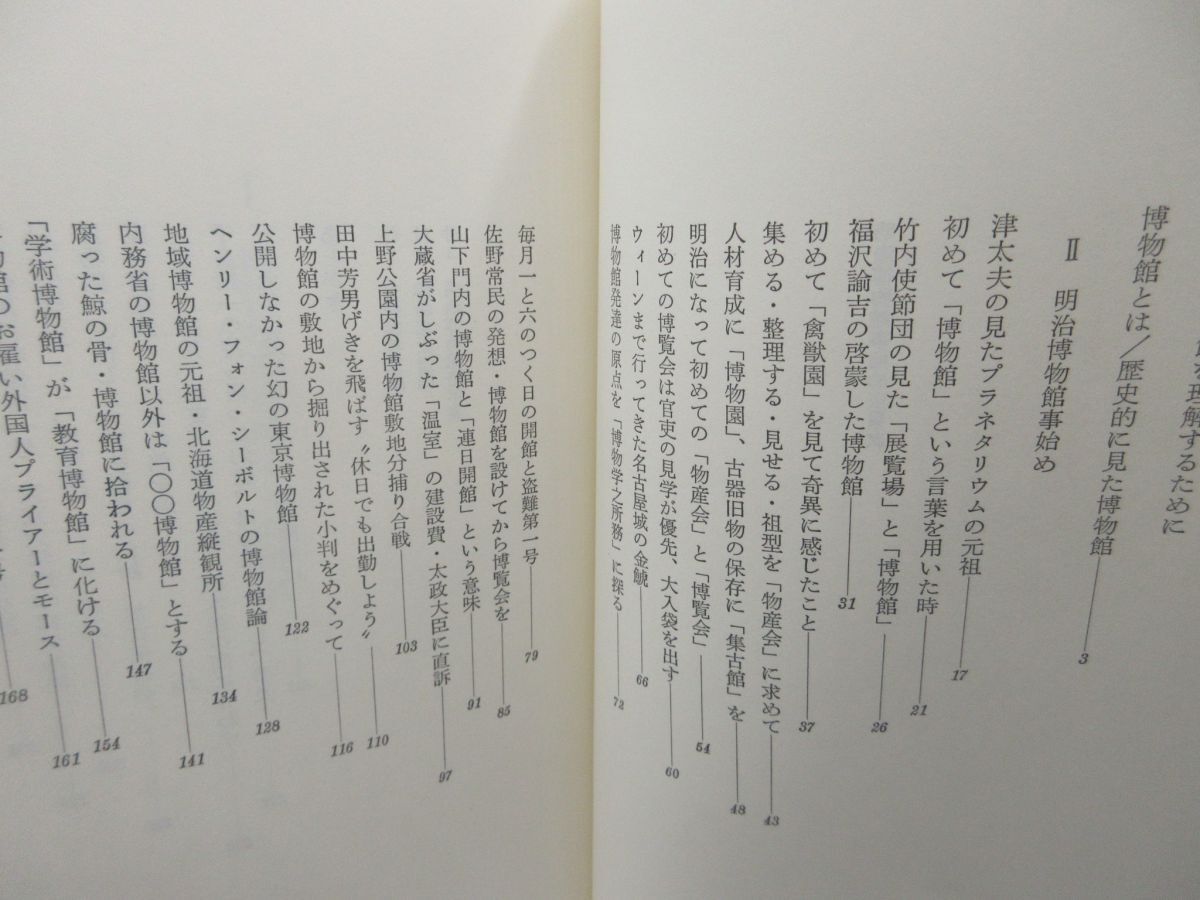 を理解するために
博物館とは/歴史的に見た博物館 3
Ⅱ 明治博物館事始め
津太夫の見たプラネタリウムの元祖 17
初めて「博物館」という言葉を用いた時 21
竹内使節団の見た「展覧場」と「博物館」 26
福沢諭吉の啓蒙した博物館 31
初めて「禽獣園」を見て奇異に感じたこと 37
集める・整理する・見せる・祖型を「物産会」に求めて 43
人材育成に「博物園」、古器旧物の保存に「集古館」を 48
明治になって初めての「物産会」と「博覧会」 54
初めての博覧会は官吏の見学が優先、大入袋を出す 60
ウィーンまで行ってきた名古屋城の金鯱 66
博物館発達の原点を「博物学之所務」に探る 72
毎月一と六のつく日の開館と盗難第一号 79
佐野常民の発想・博物館を設けてから博覧会を 85
山下門内の博物館と「連日開館」という意味 91
大蔵省がしぶった「温室」の建設費・太政大臣に直訴 97
上野公園内の博物館敷地分捕り合戦 103
田中芳男げきを飛ばす〝休日でも出勤しよう〟 110
博物館の敷地から掘り出された小判をめぐって 116
公開しなかった幻の東京博物館 122
ヘンリー・フォン・シーボルトの博物館論 128
地域博物館の元祖・北海道物産縦観所 134
内務省の博物館以外は「〇〇博物館」とする 141
腐った鯨の骨・博物館に拾われる 147
「学術博物館」が「教育博物館」に化ける 154
のお雇い外国人プライアーとモース 161
168